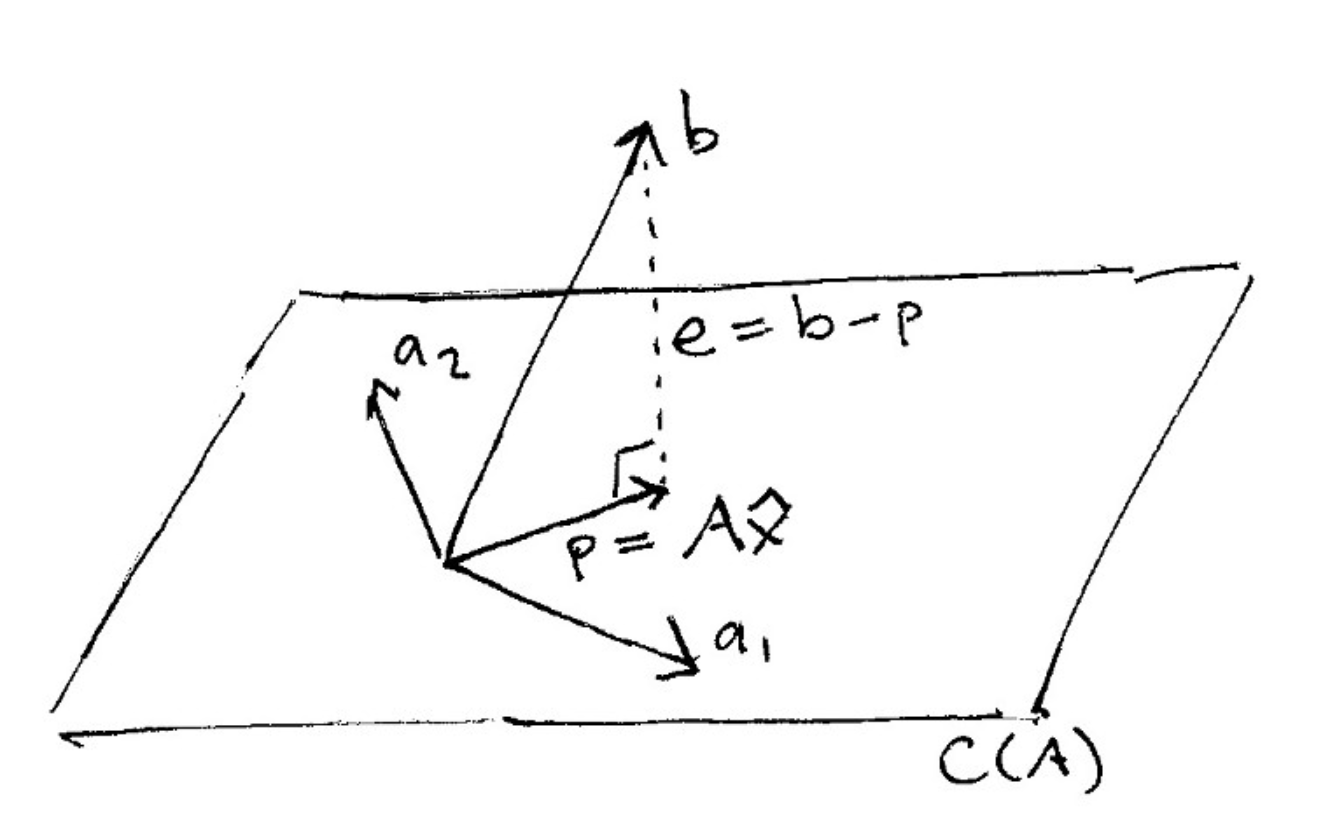 b
e = b - p
a₂
p = Ax̂
a₁
C(A)